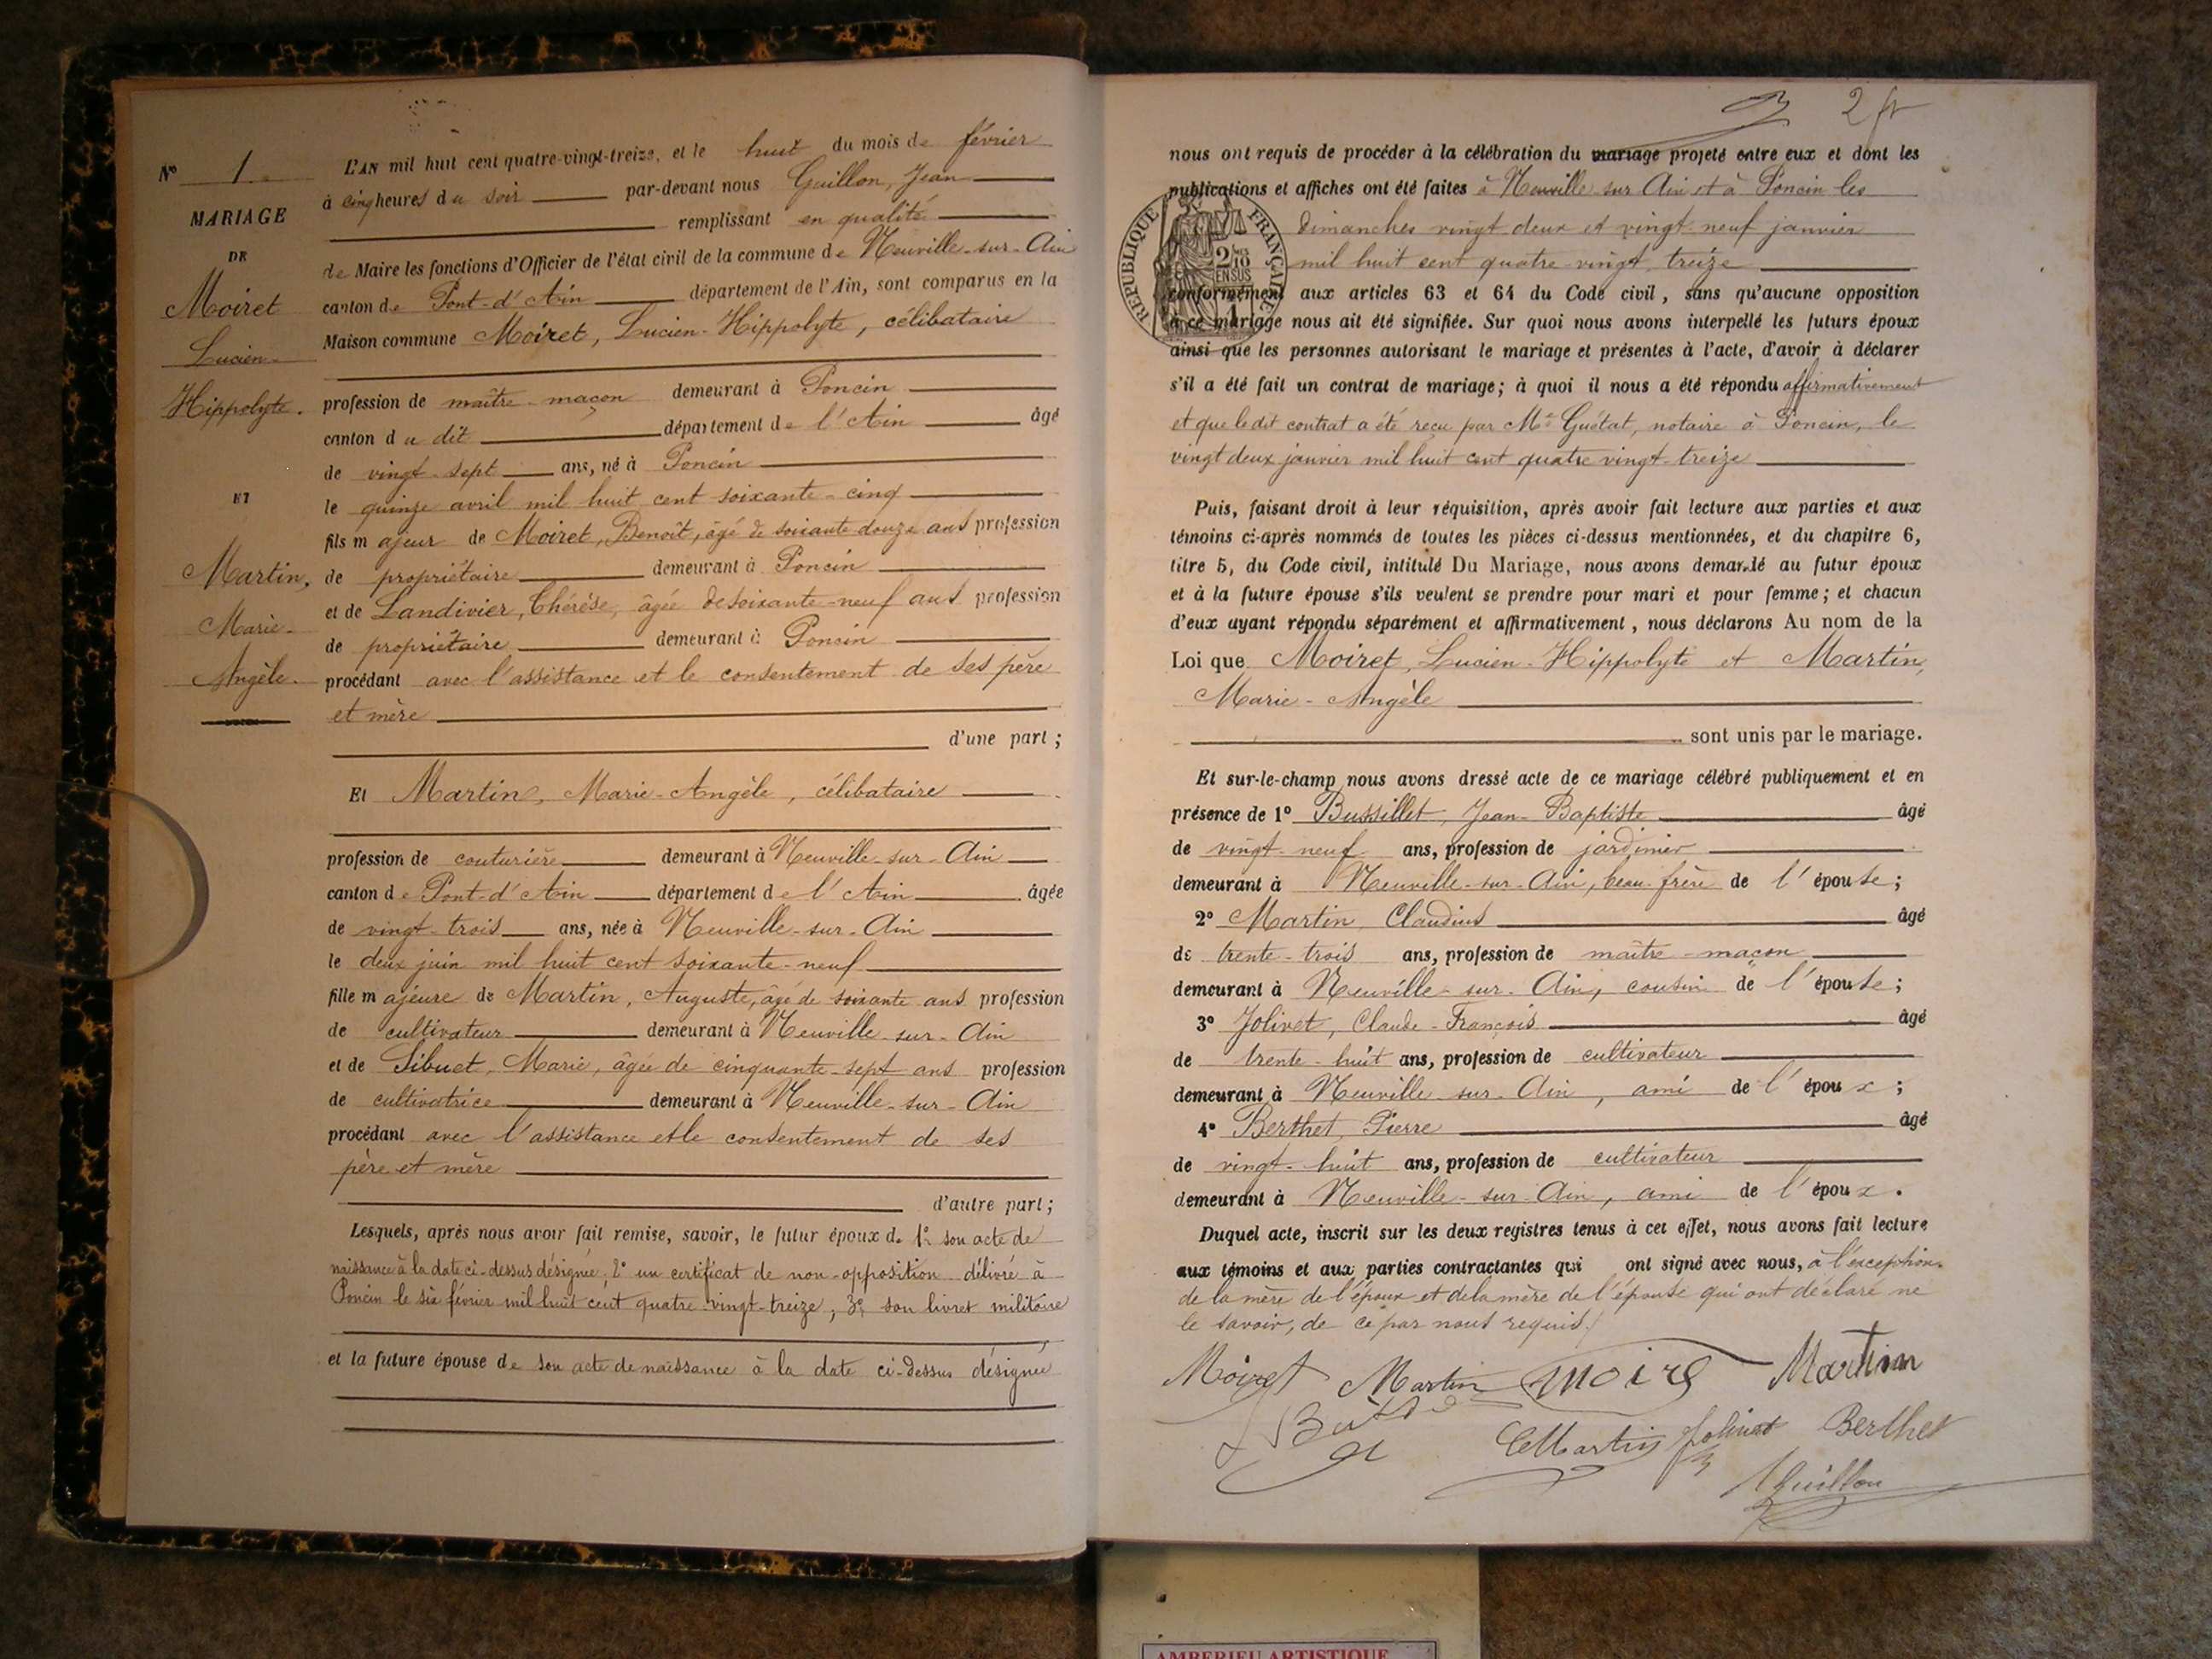 N° 1.
MARIAGE
DE
Moiret
Lucien-
Hippolyte.
ET
Martin,
Marie-
Angèle.
L'AN mil huit cent quatre-vingt-treize, et le huit du mois de février
à cinq heures du soir par-devant nous Guillon, Jean
remplissant en qualité
de Maire les fonctions d'Officier de l'état civil de la commune de Neuville-sur-Ain
canton de Pont-d'Ain département de l'Ain, sont comparus en la
Maison commune Moiret, Lucien-Hippolyte, célibataire
profession de maître-maçon demeurant à Poncin
canton du dit département de l'Ain âgé
de vingt-sept ans, né à Poncin
le quinze avril mil huit cent soixante-cinq
fils majeur de Moiret, Benoît, âgé de soixante douze ans profession
de propriétaire demeurant à Poncin
et de Landivier, Thérèse, âgée de soixante-neuf ans profession
de propriétaire demeurant à Poncin
procédant avec l'assistance et le consentement de ses père
et mère
d'une part ;
Et Martin, Marie-Angèle, célibataire
profession de couturière demeurant à Neuville-sur-Ain
canton de Pont-d'Ain département de l'Ain âgée
de vingt-trois ans, née à Neuville-sur-Ain
le deux juin mil huit cent soixante-neuf
fille majeure de Martin, Auguste, âgé de soixante ans profession
de cultivateur demeurant à Neuville-sur-Ain
et de Sibuet, Marie, âgée de cinquante-sept ans profession
de cultivatrice demeurant à Neuville-sur-Ain
procédant avec l'assistance et le consentement de ses
père et mère
d'autre part ;
Lesquels, après nous avoir fait remise, savoir, le futur époux de 1° son acte de
naissance à la date ci-dessus désignée, 2° un certificat de non-opposition délivré à
Poncin le six février mil huit cent quatre-vingt-treize, 3° son livret militaire
et la future épouse de son acte de naissance à la date ci-dessus désignée
2 fr
nous ont requis de procéder à la célébration du mariage projeté entre eux et dont les
publications et affiches ont été faites à Neuville sur Ain et à Poncin les
dimanches vingt deux et vingt neuf janvier
mil huit cent quatre-vingt treize
RÉPUBLIQUE FRANÇAISE
EN SUS
conformément aux articles 63 et 64 du Code civil, sans qu'aucune opposition
à ce mariage nous ait été signifiée. Sur quoi nous avons interpellé les futurs époux
ainsi que les personnes autorisant le mariage et présentes à l'acte, d'avoir à déclarer
s'il a été fait un contrat de mariage ; à quoi il nous a été répondu affirmativement
et que le dit contrat a été reçu par Me Guétat, notaire à Poncin, le
vingt deux janvier mil huit cent quatre vingt-treize
Puis, faisant droit à leur réquisition, après avoir fait lecture aux parties et aux
témoins ci-après nommés de toutes les pièces ci-dessus mentionnées, et du chapitre 6,
titre 5, du Code civil, intitulé Du Mariage, nous avons demandé au futur époux
et à la future épouse s'ils veulent se prendre pour mari et pour femme ; et chacun
d'eux ayant répondu séparément et affirmativement, nous déclarons Au nom de la
Loi que Moiret, Lucien-Hippolyte et Martin,
Marie-Angèle
sont unis par le mariage.
Et sur-le-champ nous avons dressé acte de ce mariage célébré publiquement et en
présence de 1° Bussillet, Jean-Baptiste âgé
de vingt-neuf ans, profession de jardinier
demeurant à Neuville-sur-Ain, beau-frère de l'épouse ;
2° Martin, Claudius âgé
de trente-trois ans, profession de maître-maçon
demeurant à Neuville-sur-Ain, cousin de l'épouse ;
3° Jolivet, Claude-François âgé
de trente-huit ans, profession de cultivateur
demeurant à Neuville-sur-Ain, ami de l'époux ;
4° Berthet, Pierre âgé
de vingt-huit ans, profession de cultivateur
demeurant à Neuville-sur-Ain, ami de l'époux.
Duquel acte, inscrit sur les deux registres tenus à cet effet, nous avons fait lecture
aux témoins et aux parties contractantes qui ont signé avec nous, à l'exception
de la mère de l'époux et de la mère de l'épouse qui ont déclaré ne
le savoir, de ce par nous requis.
Moiret Martin moire Martin
CMartin Jolivet Berthet
Guillon
AMBERIEU ARTISTIQUE